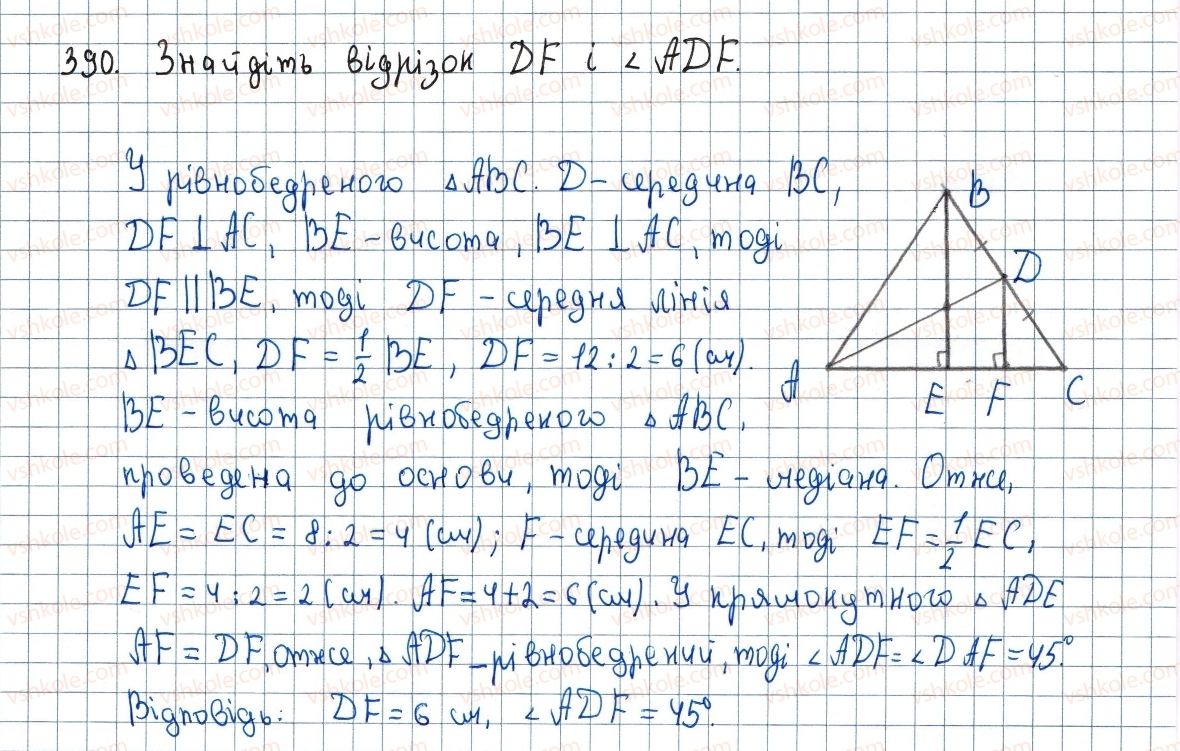 390. Знайдіть відрізок DF і ∠ADF.
У рівнобедреного △ABC. D – середина BC,
DF ⊥ AC, BE – висота, BE ⊥ AC, тоді
DF || BE, тоді DF – середня лінія
△BEC, DF = 1/2 BE, DF = 12 : 2 = 6 (см).
BE – висота рівнобедреного △ABC,
проведена до основи, тоді BE – медіана. Отже,
AE = EC = 8 : 2 = 4 (см); F – середина EC, тоді EF = 1/2 EC,
EF = 4 : 2 = 2 (см). AF = 4 + 2 = 6 (см). У прямокутного △ADE
AF = DF, отже, △ADF – рівнобедрений, тоді ∠ADF = ∠DAF = 45°.
Відповідь: DF = 6 см, ∠ADF = 45°.
B
D
A
E F C
vshkole.com